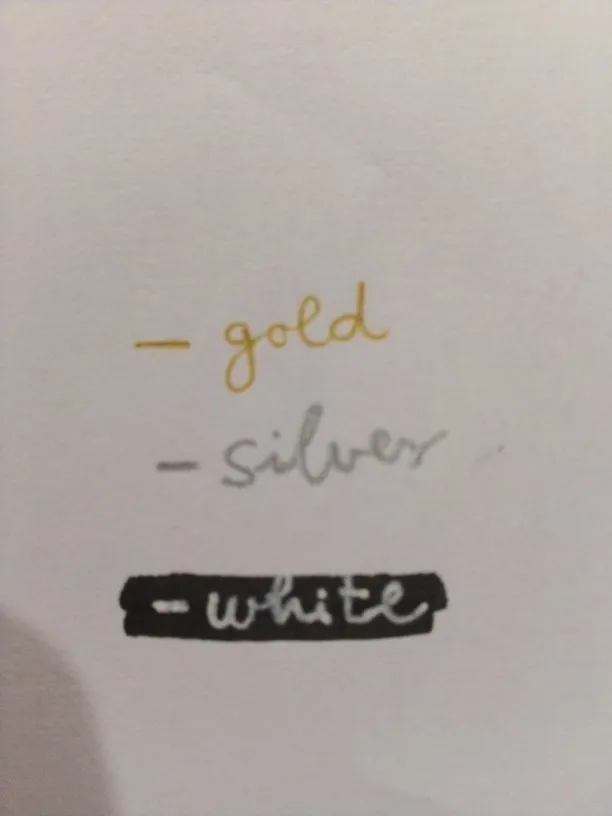 - gold
- silver
- white